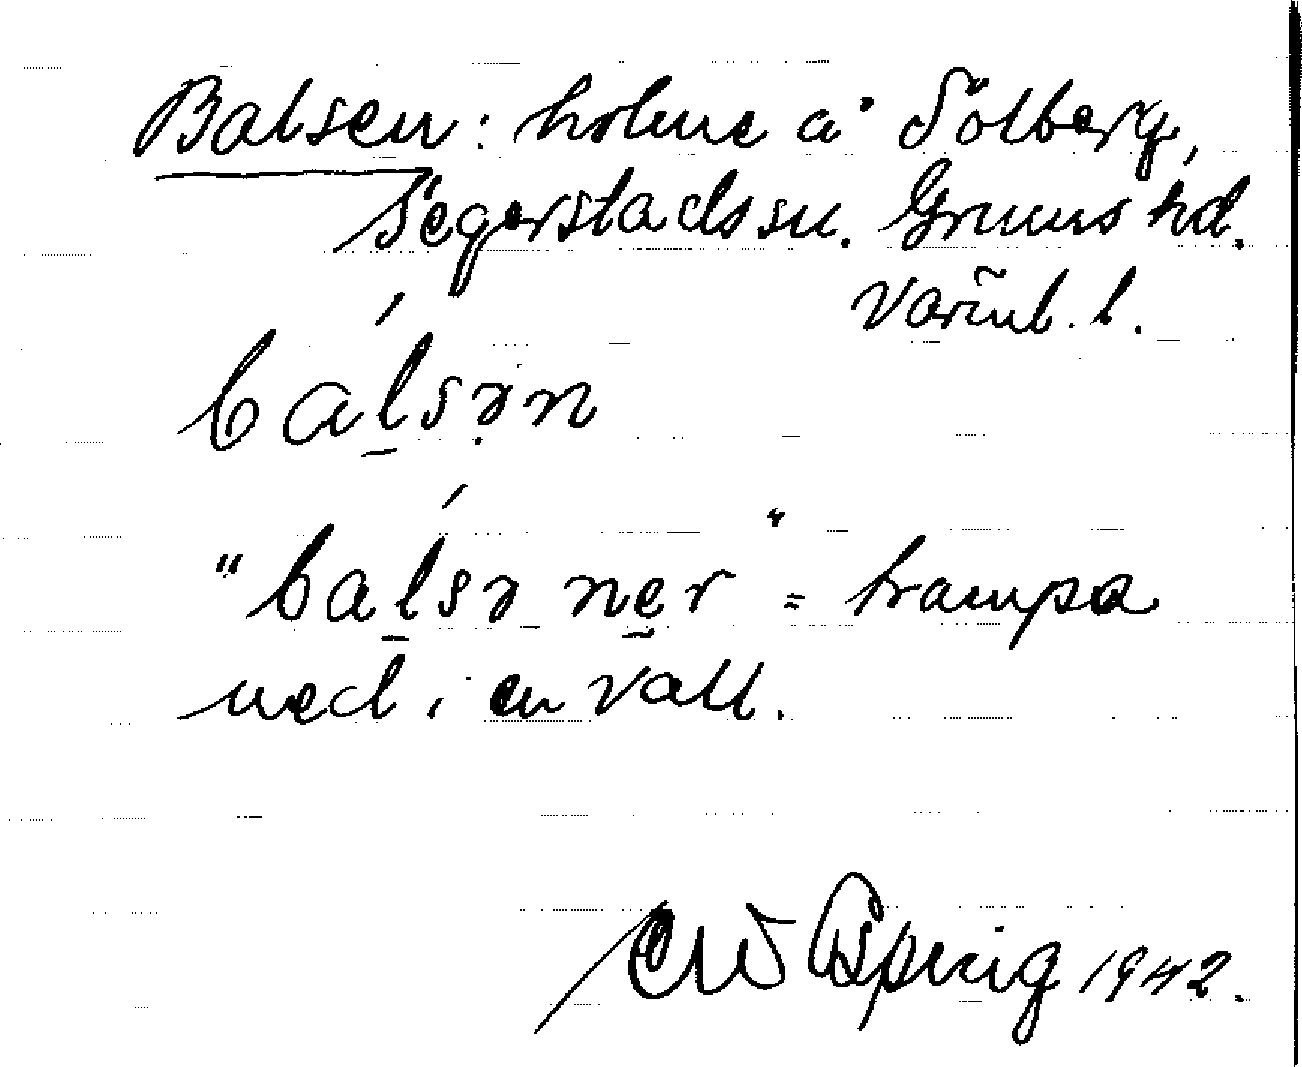 Balsen: holme å Sölberg,
Segerstads sn. Grums hd.
Värml. l.
bálsə̣n
"bálsə ner" = trampa
ned i en vall.
CW Esping 1942.